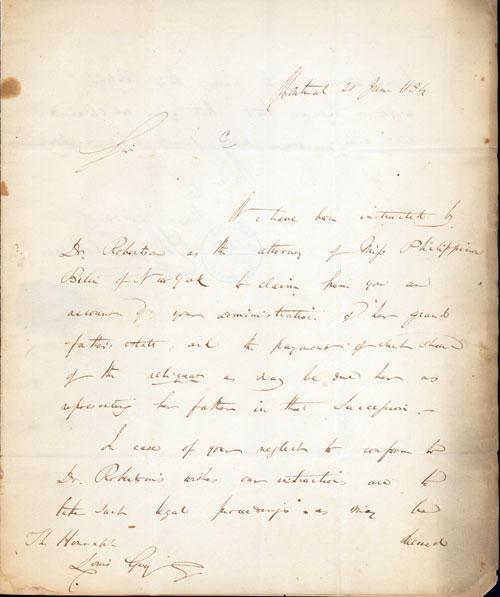 Montreal 21 June 1834
Sir
We have been instructed by
Dr. Robertson as the attorney of Miss Philippina
Belin of New York to claim from you an
account of your administration of her grand
father's estate, and the payment of such share
of the reliquat as may be due her as
representing her father in that Succession. -
In case of your neglect to conform to
Dr. Robertson's wishes our instructions are to
take such legal proceedings as may be
deemed
The Honorable
Louis Guy